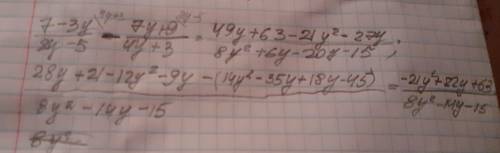 (7-3y)/(2y-5) - (7y+9)/(4y+3) = (49y+63-21y²-27y)/(8y²+6y-20y-15);
(28y+21-12y²-9y-(14y²-35y+18y-45))/(8y²-14y-15) = (-21y²+22y+63)/(8y²-14y-15)
8y²